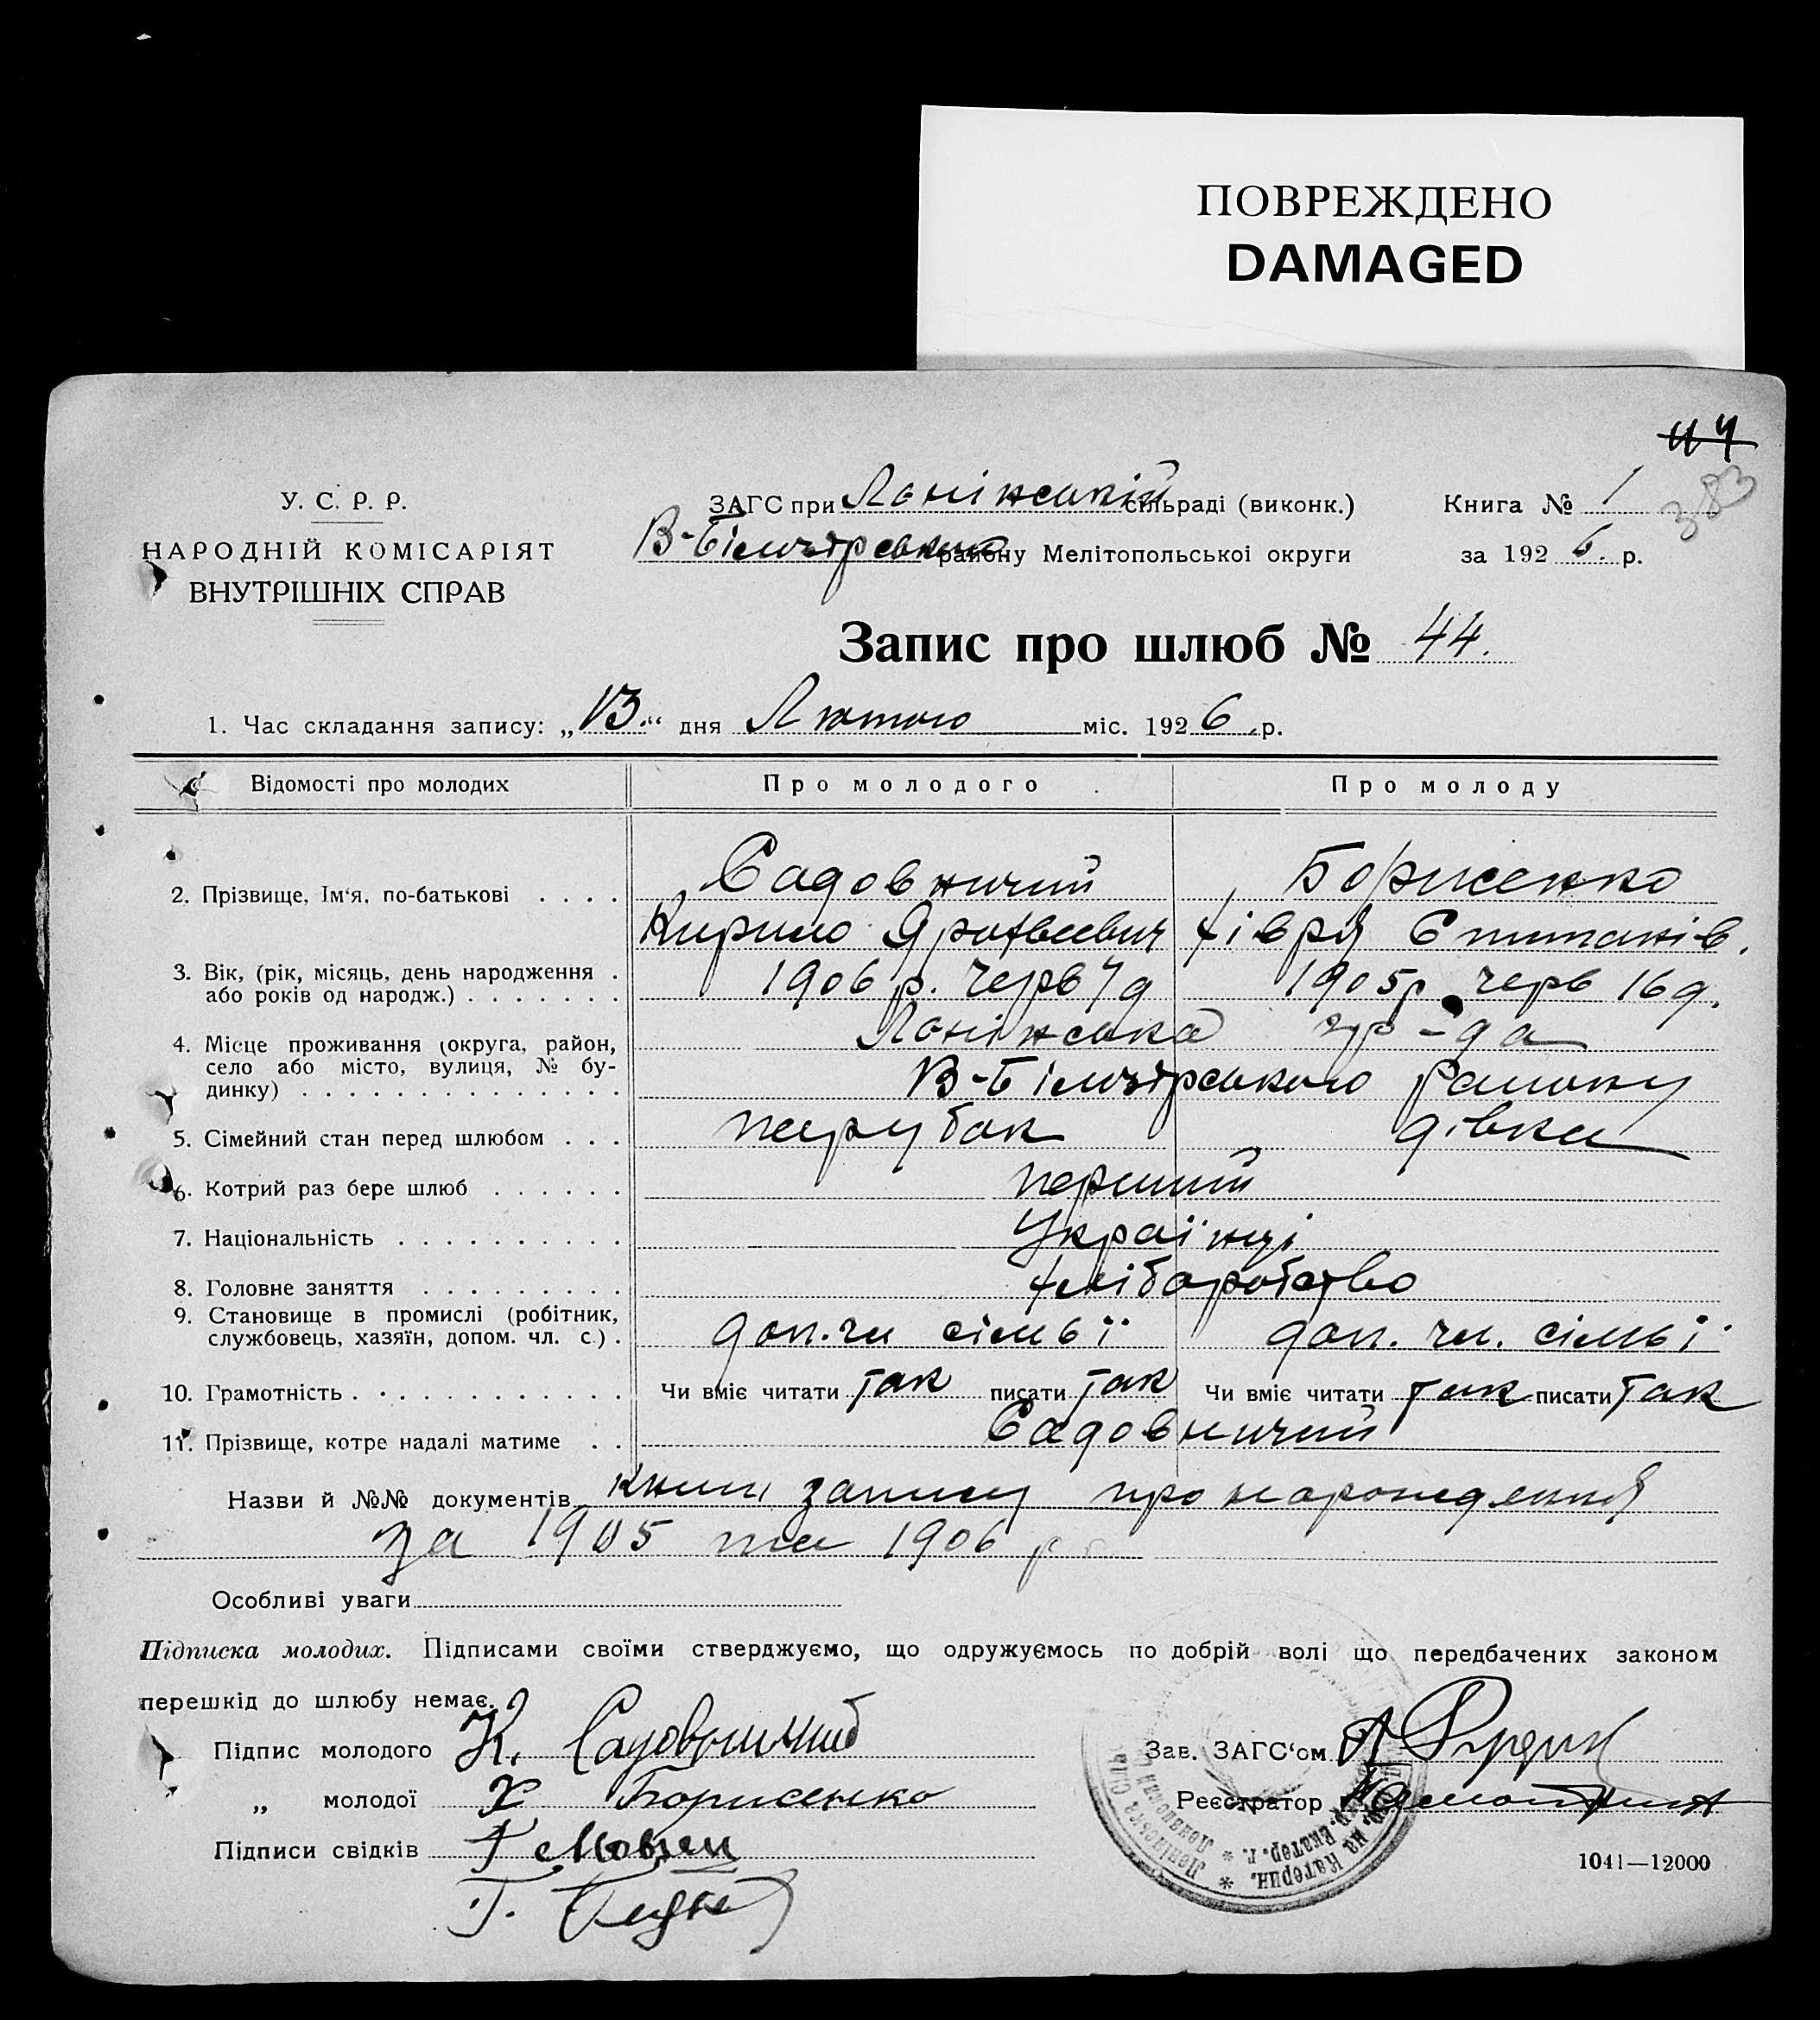 ПОВРЕЖДЕНО
DAMAGED
383
У. С. Р. Р.
НАРОДНІЙ КОМІСАРІЯТ
ВНУТРІШНІХ СПРАВ
ЗАГС при Ленінській сільраді (виконк.)
В-Білозірського району Мелітопольської округи
Книга № 1
за 1926. р.
Запис про шлюб № 44.
1. Час складання запису: „13“ дня Лютого міс. 1926 р.
Відомості про молодих Про молодого Про молоду
2. Прізвище, Ім‘я, по-батькові . . . . Садовничий Борисенко
Кирило Хівря
3. Вік, (рік, місяць, день народження . або років од народж.) . . . . . . . 1906 р. черв 7 д 1905 р черв 16 д.
4. Місце проживання (округа, район, село або місто, вулиця, № будинку) . . . . . . . . . . . . . . Ленінська гр-да
В-Білозірського району
5. Сімейний стан перед шлюбом . . . парубок дівка
6. Котрий раз бере шлюб . . . . . . перший
7. Національність . . . . . . . . . . Українці
8. Головне заняття . . . . . . . . . хліборобство
9. Становище в промислі (робітник, службовець, хазяїн, допом. чл. с.) . доп. чл сімьї доп. чл. сімьї
10. Грамотність . . . . . . . . . . . . Чи вміє читати так писати так Чи вміє читати так писати так
11. Прізвище, котре надалі матиме . . Садовничий
Назви й №№ документів книги запису про народження
за 1905 та 1906 р
Особливі уваги
Підписка молодих. Підписами своїми стверджуємо, що одружуємось по добрій волі що передбачених законом
перешкід до шлюбу немає.
Підпис молодого К. Садовничий
„ молодої Х Борисенко
Підписи свідків
Зав. ЗАГС‘ом
Реєстратор
1041—12000